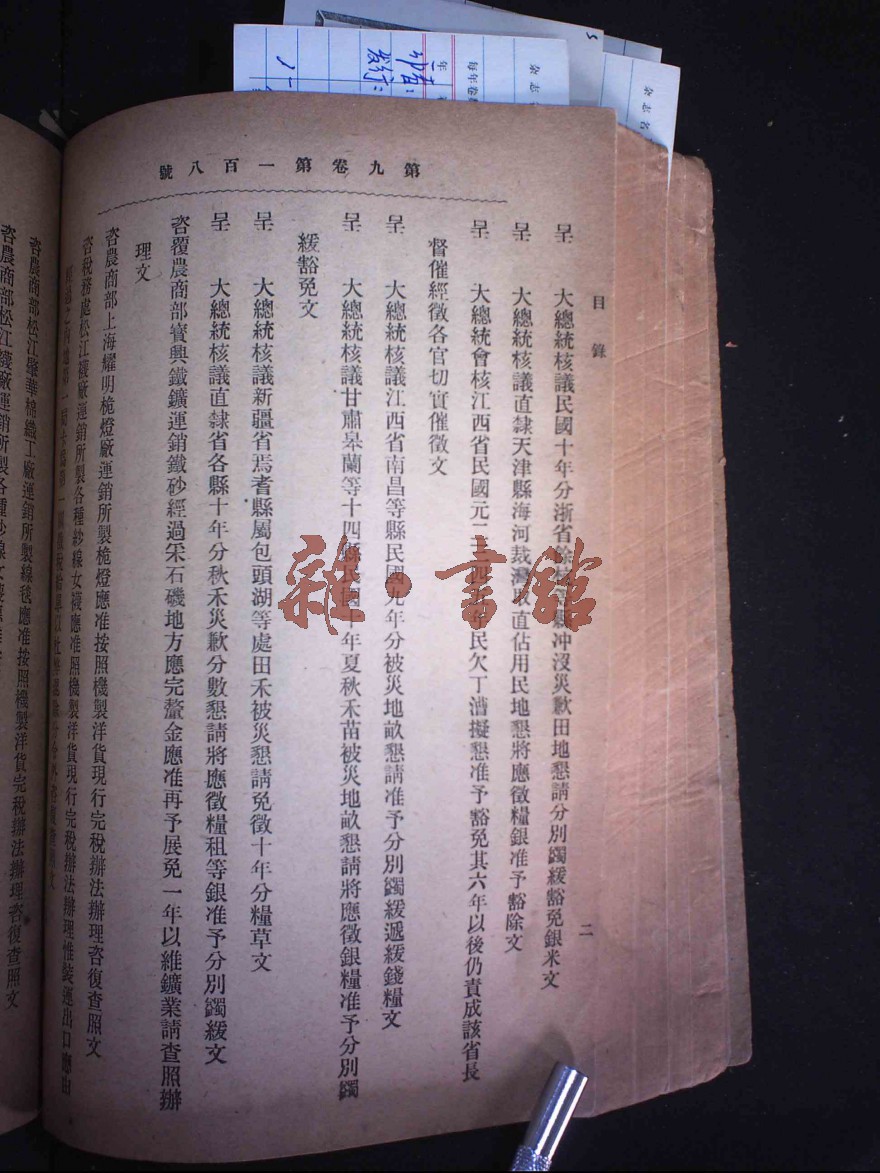 第九卷第一百八號
目錄
二
呈 大總統核議民國十年分浙省餘 冲沒災歉田地懇請分別蠲緩豁免銀米文
呈 大總統核議直隸天津縣海河裁灣取直佔用民地懇將應徵糧銀准予豁除文
呈 大總統會核江西省民國元二三四五年民欠丁漕擬懇准予豁免其六年以後仍責成該省長
督催經徵各官切實催徵文
呈 大總統核議江西省南昌等縣民國九年分被災地畝懇請准予分別蠲緩遞緩錢糧文
呈 大總統核議甘肅皋蘭等十四縣民國十年夏秋禾苗被災地畝懇請將應徵銀糧准予分別蠲
緩豁免文
呈 大總統核議新疆省焉耆縣屬包頭湖等處田禾被災懇請免徵十年分糧草文
呈 大總統核議直隸省各縣十年分秋禾災歉分數懇請將應徵糧租等銀准予分別蠲緩文
咨覆農商部寶興鐵鑛運銷鐵砂經過采石磯地方應完釐金應准再予展免一年以維鑛業請查照辦
理文
咨農商部上海耀明桅燈廠運銷所製桅燈應准按照機製洋貨現行完稅辦法辦理咨復查照文
咨稅務處松江襪廠運銷所製各種紗線女襪應准照機製洋貨現行完稅辦法辦理惟裝運出口應由
咨農商部松江 華棉織工廠運銷所製線毯應准按照機製洋貨完稅辦法辦理咨復查照文
咨農商部松江襪廠運銷所製各種紗線女襪應准
雜·書館
杂志名
杂志
每年卷
年